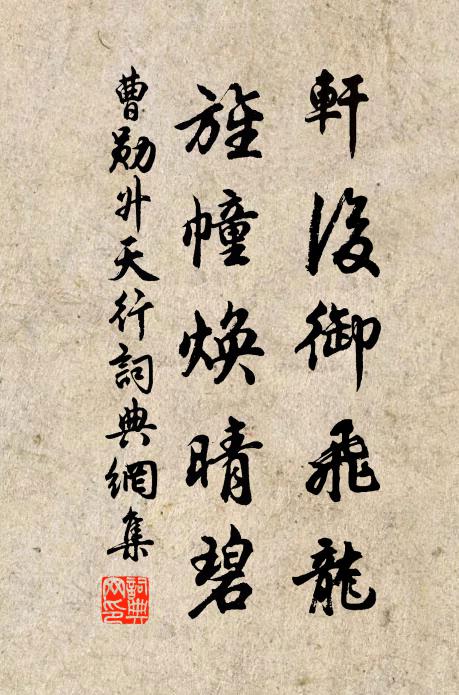 軒後御飛龍
旌幢煥晴碧
曹勛升天行詞典網集
詞典网印